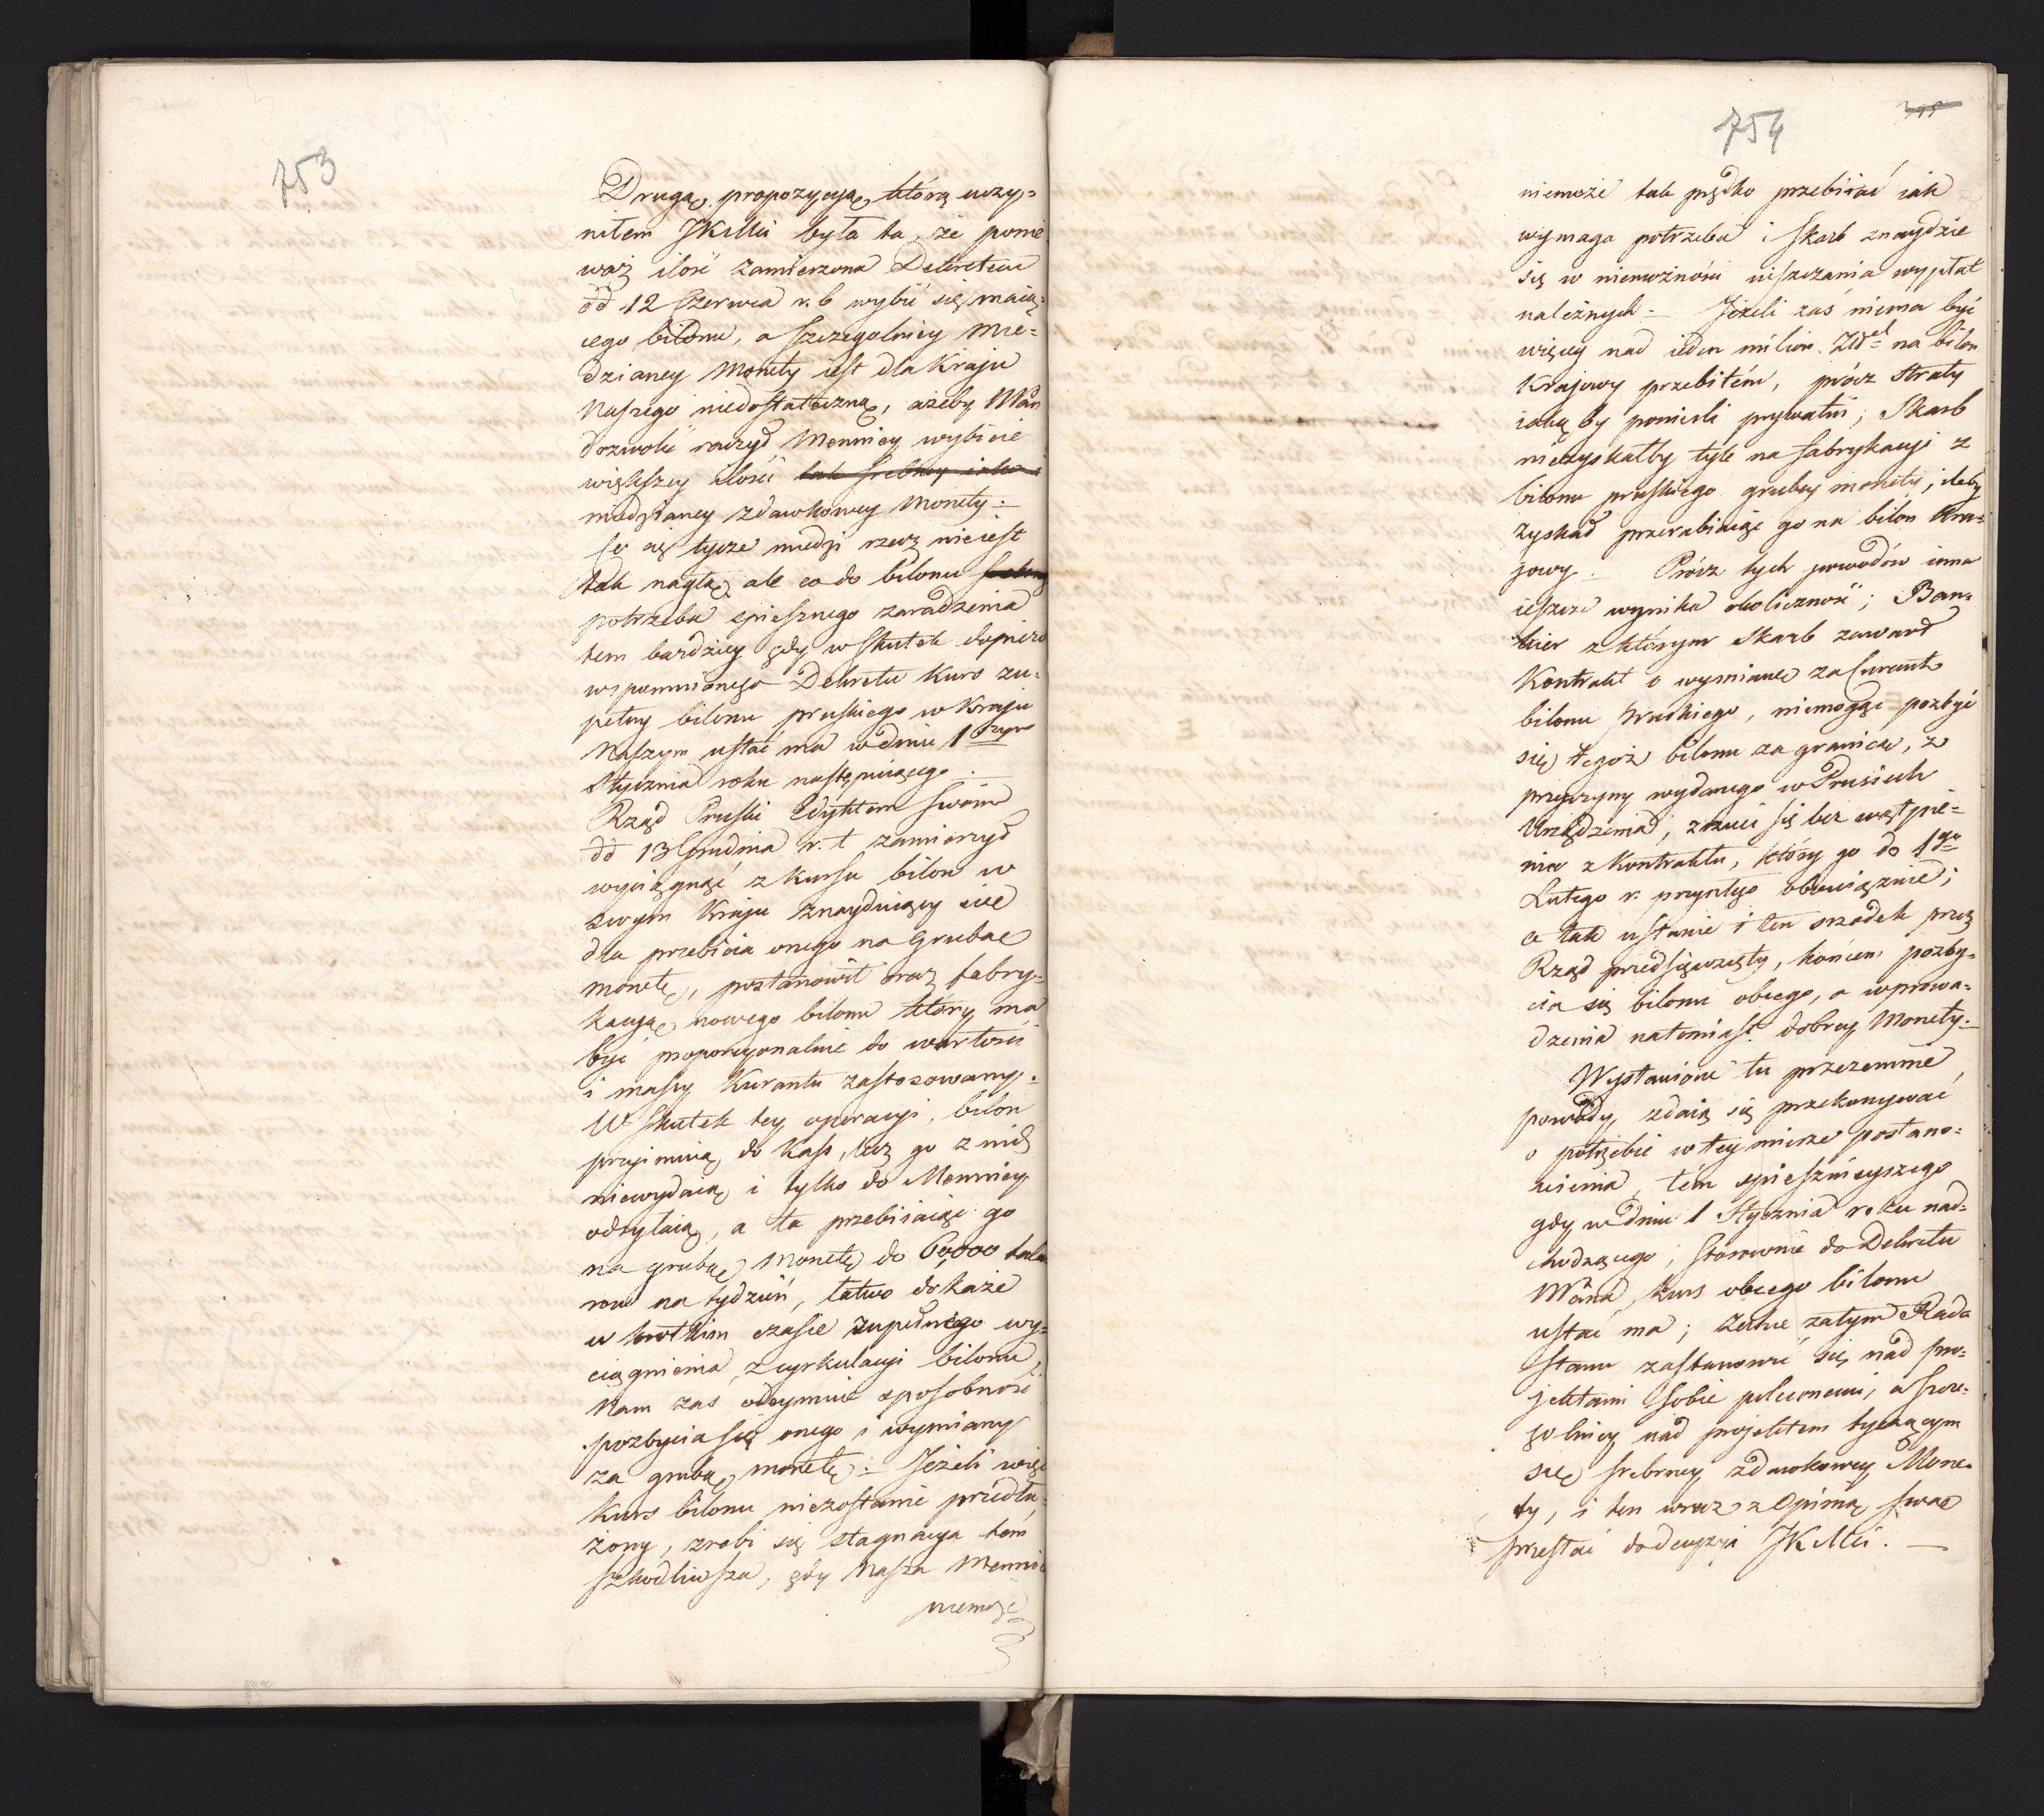 753
Drugą propozycyą, którą uczy=
niłem JKMci była ta, że ponie
waż ilość zamierzona Dekretem
dd 12 Czerwca r. b wybić się maią=
cego bilonu, a szczegolniey mie=
dzianey Monety iest dla Kraju
Naszego niedostateczną, ażeby
dozwolić raczył Mennicy wybicie
większey ilości tak srebrney iako i
miedzianey zdawkowey Monety:
Co się tycze miedzi rzecz nieiest
tak nagłą, ale co do bilonu
potrzeba spiesznego zaradzenia
tem bardziey gdy w skutek dopiero
wspomnionego Dekretu Kurs zu=
pełny bilonu pruskiego w Kraju
Naszym ustać ma w dniu 1
Stycznia roku następuiącego.
Rząd Pruski Edyktem swoim
dd 13 Grudnia r. t zamierzył
wyciągnąć z kursu bilon w
swym Kraju znayduiący sie
dla przebicia onego na Grubae
monetę, postanowił oraz fabry=
kacyą nowego bilonu który ma
być proporcyonalnie do wartości
i massy Kurantu zastosowany.
W skutek tey operacyi, bilon
przyimuią do Kass, lecz go z nich
niewydaią i tylko do Mennicy
odsyłaią, a ta przebiiaiąc go
na grubą Monetę do 60,000 tala
row na tydzień, łatwo dokaże
w krotkim czasie zupełnego wy=
ciągnienia z cyrkulacyi bilonu,
Nam zas odeymuie sposobność
pozbycia się onego i wymiany
za grubą monetę. Jeżeli więc
Kurs bilonu niezostanie przedłu=
żony, zrobi się stagnacya tem
szkodliwsza, gdy Nasza Mennica
niemoże
754
niemoże tak prędko przebiiać iak
wymaga potrzeba i Skarb znaydzie
się w niemożności uiszczania wypłat
należnych = Jeżeli zaś niema być
więcey nad ieden milion na bilon
Kraiowy przebitém, prócz straty
iaką by ponieśli prywatni, Skarb
niezyskałby tyle na fabrykacyi z
bilonu pruskiego grubey monety, ileby
zyskał przerabiaiąc go na bilon Kra=
jowy. Prócz tych powodów inna
ieszcze wynika okoliczność; Ban=
kier z którym Skarb zawarł
Kontrakt o wymianę za Curant
bilonu Pruskiego, niemogąc pozbyć
się tegoż bilonu za granicą, z
przyczyny wydanego w Prusiech
Urządzenia, zrzuci się bez wątpie=
nia z Kontraktu, który go do 1go
Lutego r. przyszłego obowiązuie;
a tak ustanie i ten srzodek przez
Rząd przedsięwzięty, końcem pozby=
cia się bilonu obcego, a wprowa=
dzenia natomiast dobrey Monety.
Wystawione tu przezemnie
powody, zdaią się przekonywać
o potrzebie w tey mierze postano=
wienia, tém spieszneyszego
gdy w dniu 1 Stycznia roku nad=
chodzącego, stosownie do Dekretu
kurs obcego bilonu
ustać ma; Zechce zatym Rada
Stanu zastanowić się nad pro=
jektami sobie poleconemi, a szcze=
golniey nad projektem tyczącym
się srebrney zdawkowey Mone=
ty, i ten wraz z Opinią swą
przesłać do decyzyi JKMci. —